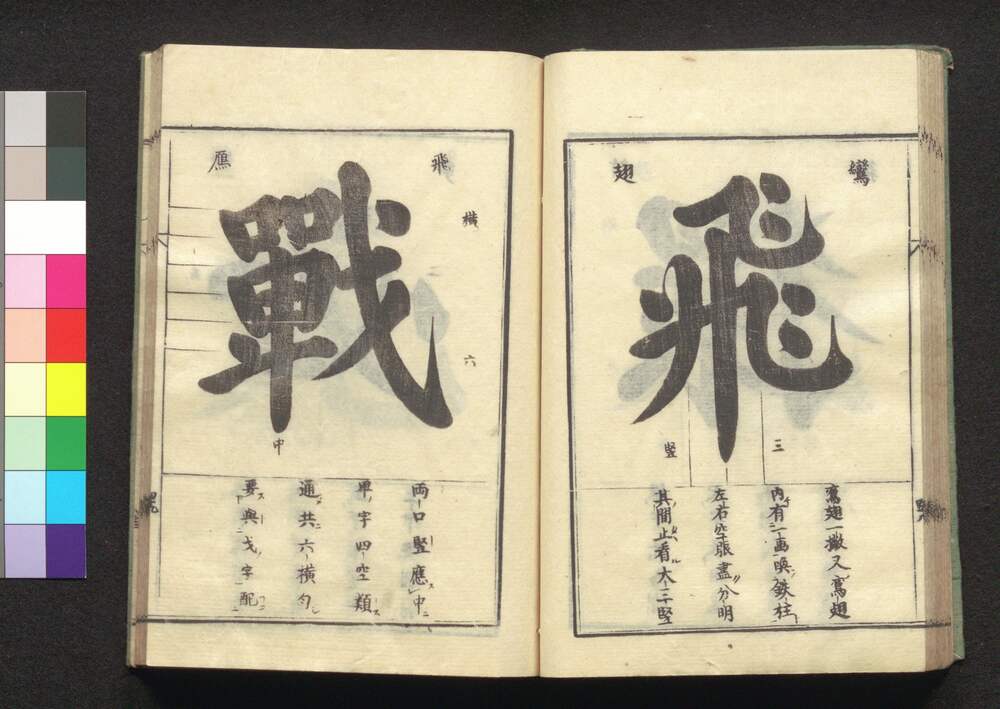 鸞
翅
飛
三
竪
鸞翅一撇又鸞翅
内有一画喚鉄柱
左右空張盡分明
其間止看大三竪
飛
鴈
横
戰
六
中
両口竪應中
単字四空類
通共六横勻
要與戈字配